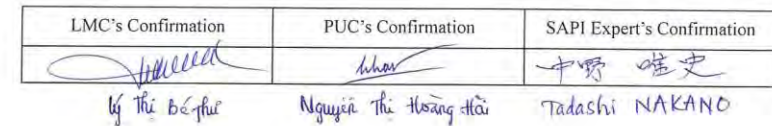 LMC's Confirmation PUC's Confirmation SAPI Expert's Confirmation
中野 唯史
Lý Thị Bé Thu Nguyễn Thị Hoàng Hải Tadashi NAKANO